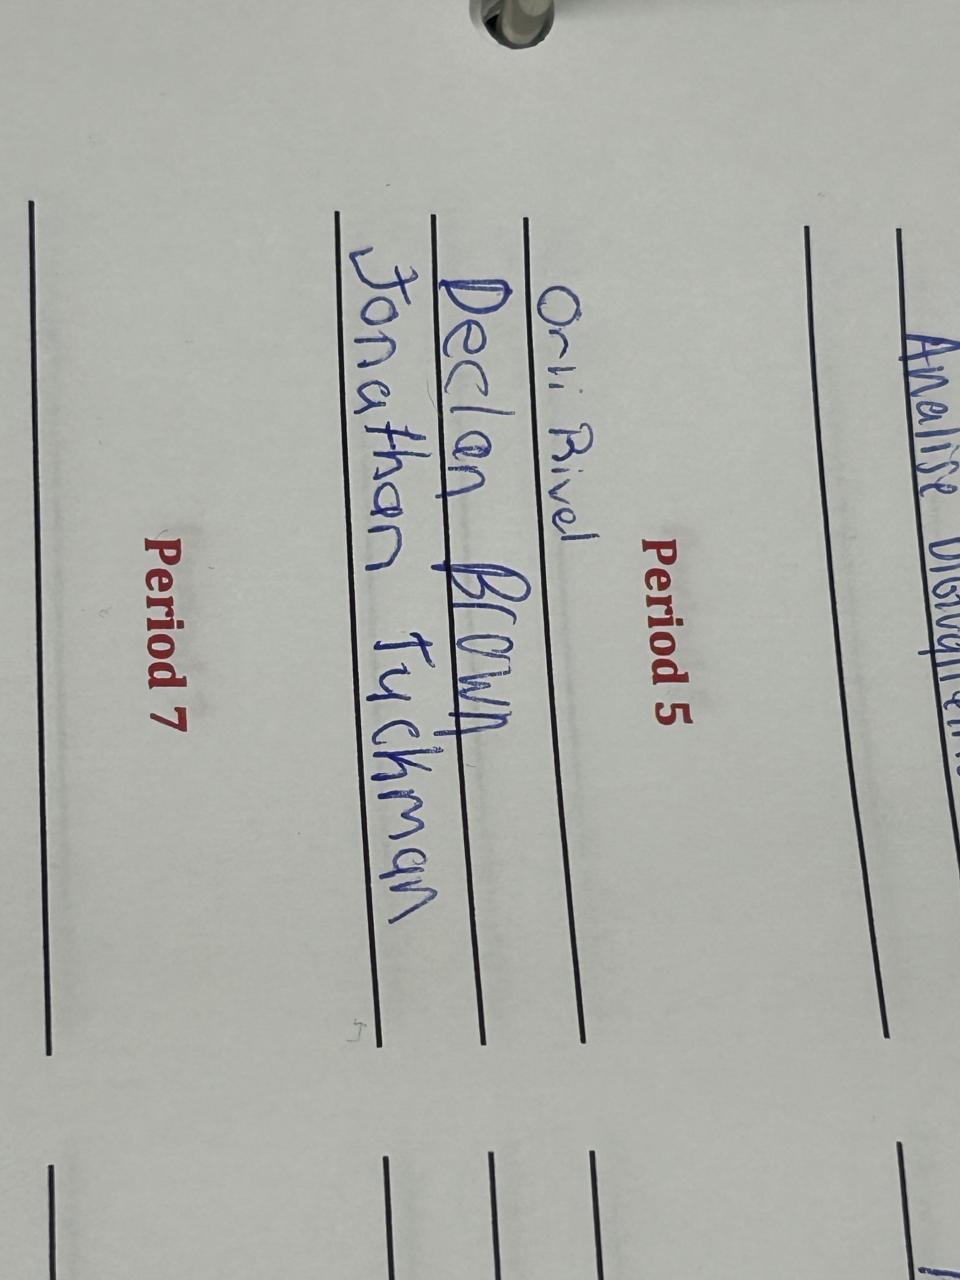 Analise
Period 5
Orli Rivel
Declan Brown
Jonathan Tuchman
Period 7